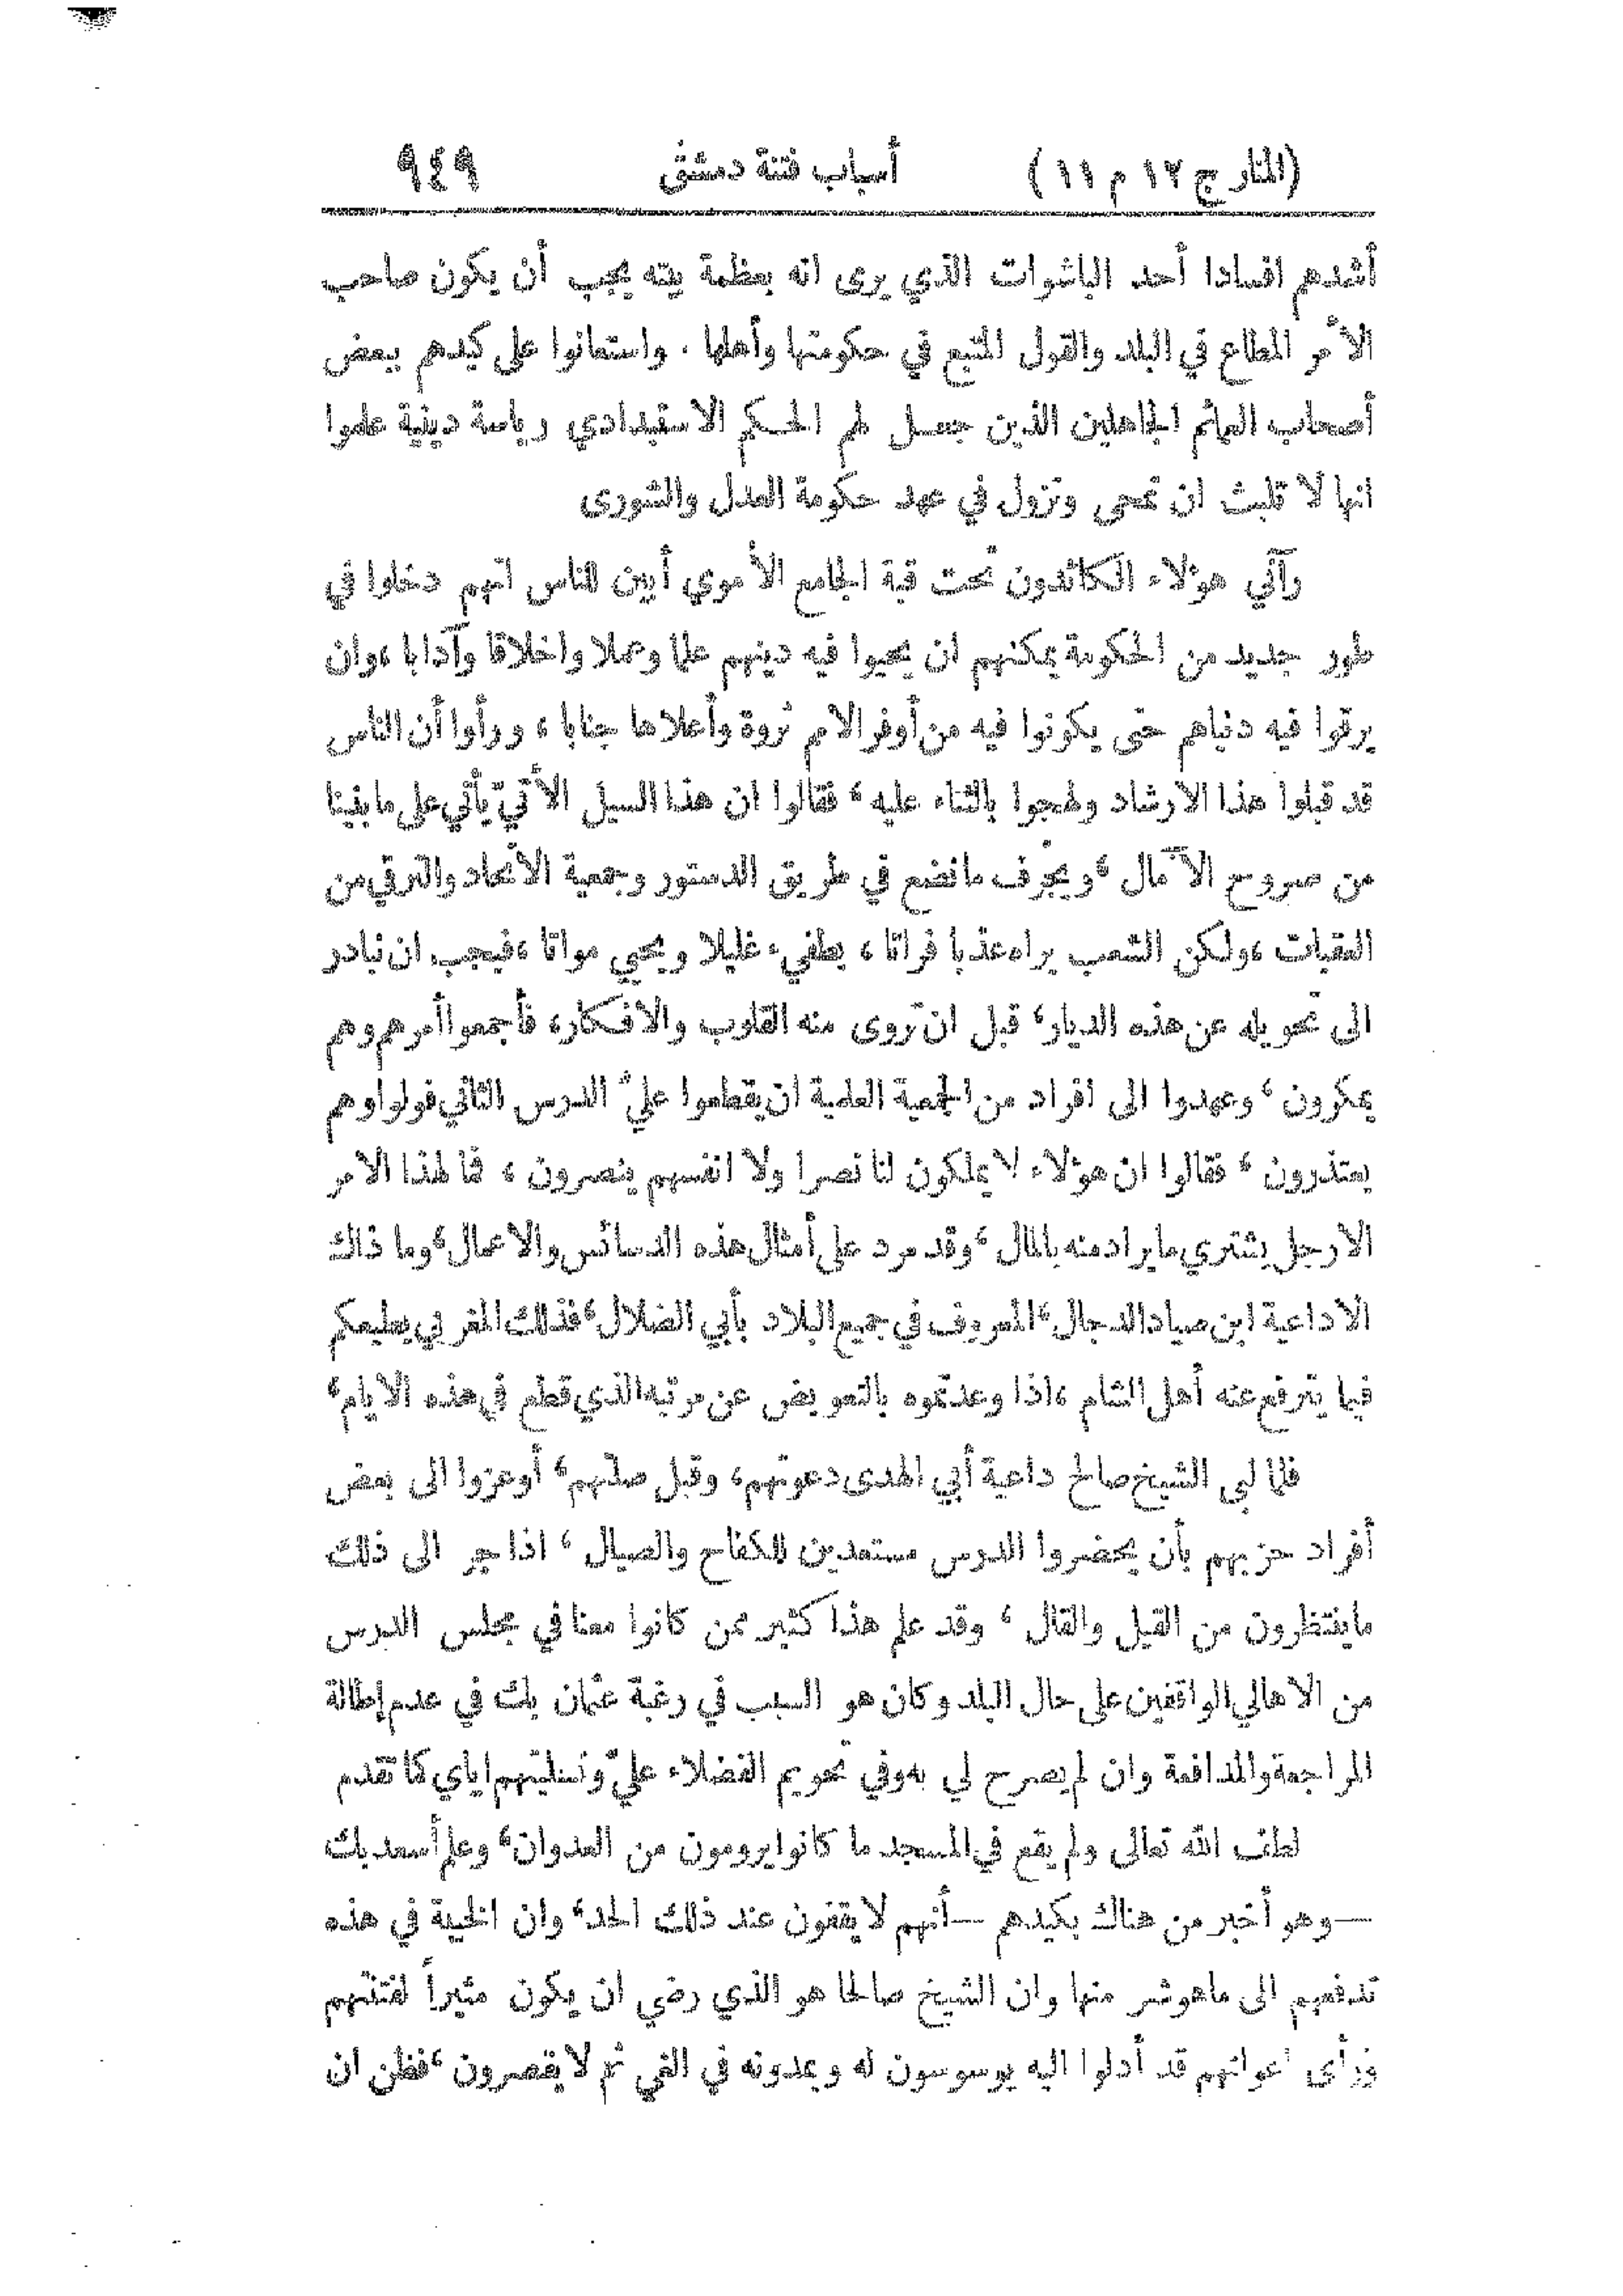 (المنار ج ١٢ م ١١) أسباب فتنة دمشق ٩٤٩
أشدهم افسادا أحد الباشوات الذي يرى انه بعظمة بيته يجب أن يكون صاحب
الأمر المطاع في البلد والقول المتبع في حكومتها وأهلها . واستعانوا على كيدهم ببعض
أصحاب العمائم الجاهلين الذين جعل لهم الحكم الاستبدادي رياسة دينية علموا
انها لا تلبث ان تمحى وتزول في عهد حكومة العدل والشورى
رآني هؤلاء الكائدون تحت قبة الجامع الأموي أبين للناس انهم دخلوا في
طور جديد من الحكومة يمكنهم ان يحيوا فيه دينهم علما وعملا واخلاقا وآدابا ، وان
يرقوا فيه دنياهم حتى يكونوا فيه من أوفر الامم ثروة وأعلاها جنابا ، ورأوا أن الناس
قد قبلوا هذا الارشاد ولهجوا بالثناء عليه ، فقالوا ان هذا السيل الأتيّ يأتي على ما بنينا
من صروح الآمال ، ويجرف ما نضع في طريق الدستور وجمعية الاتحاد والترقي من
العقبات ، ولكن الشعب يراه عذبا فراتا ، يطفيء غليلا ويحيي مواتا ، فيجب ان نبادر
الى تحويله عن هذه الديار ، قبل ان تروى منه القلوب والافكار ، فأجمعوا أمرهم وهم
يمكرون ، وعهدوا الى افراد من الجمعية العلمية ان يقطعوا عليّ الدرس الثاني فولوا وهم
يعتذرون ، فقالوا ان هؤلاء لا يملكون لنا نصرا ولا انفسهم ينصرون ، فما لهذا الامر
الا رجل يشتري ما يراد منه بالمال ، وقد مرد على أمثال هذه الدسائس والاعمال ، وما ذاك
الا داعية ابن صياد الدجال ، المعروف في جميع البلاد بأبي الضلال ، فذلك المغربي يطيعكم
فيما يترفع عنه أهل الشام ، اذا وعدتموه بالتعويض عن مرتبه الذي قطع في هذه الايام ،
فلما لبى الشيخ صالح داعية أبي الهدى دعوتهم ، وقبل صلتهم ، أوعزوا الى بعض
أفراد حزبهم بأن يحضروا الدرس مستعدين للكفاح والصيال ، اذا جر الى ذلك
ما ينتظرون من القيل والقال ، وقد علم هذا كثير ممن كانوا معنا في مجلس الدرس
من الاهالي الواقفين على حال البلد وكان هو السبب في رغبة عثمان بك في عدم إطالة
المراجعة والمدافعة وان لم يصرح لي به وفي تحويم الفضلاء عليّ وتسليتهم اياي كما تقدم
لطف الله تعالى ولم يقع في المسجد ما كانوا يرومون من العدوان ، وعلم أسعد بك
—وهو أخبر من هناك بكيدهم — أنهم لا يقفون عند ذلك الحد ، وان الخيبة في هذه
تدفعهم الى ما هو شر منها وان الشيخ صالحا هو الذي رضي ان يكون مثيراً لفتنتهم
ورأى اعوانهم قد أدلوا اليه يوسوسون له ويمدونه في الغي ثم لا يقصرون ، فظن ان